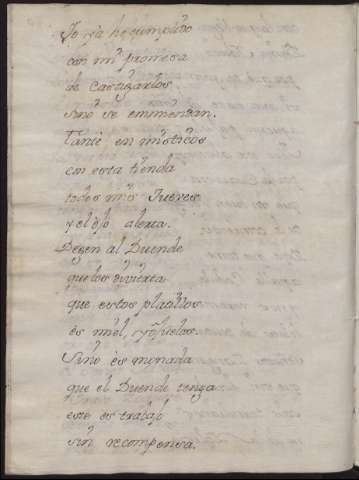 Yo ya he cumplido
con mi promesa
de Castigarlos
sino se emmiendan.
en místicos
con esta tienda
todos mis Jueves
y el ojo alerta.
Dejen al Duende
que los divierta
que estos platillos
es miel, y ojuelas.
Sino es monada
que el Duende tenga
este es trabajo
sin recompensa.